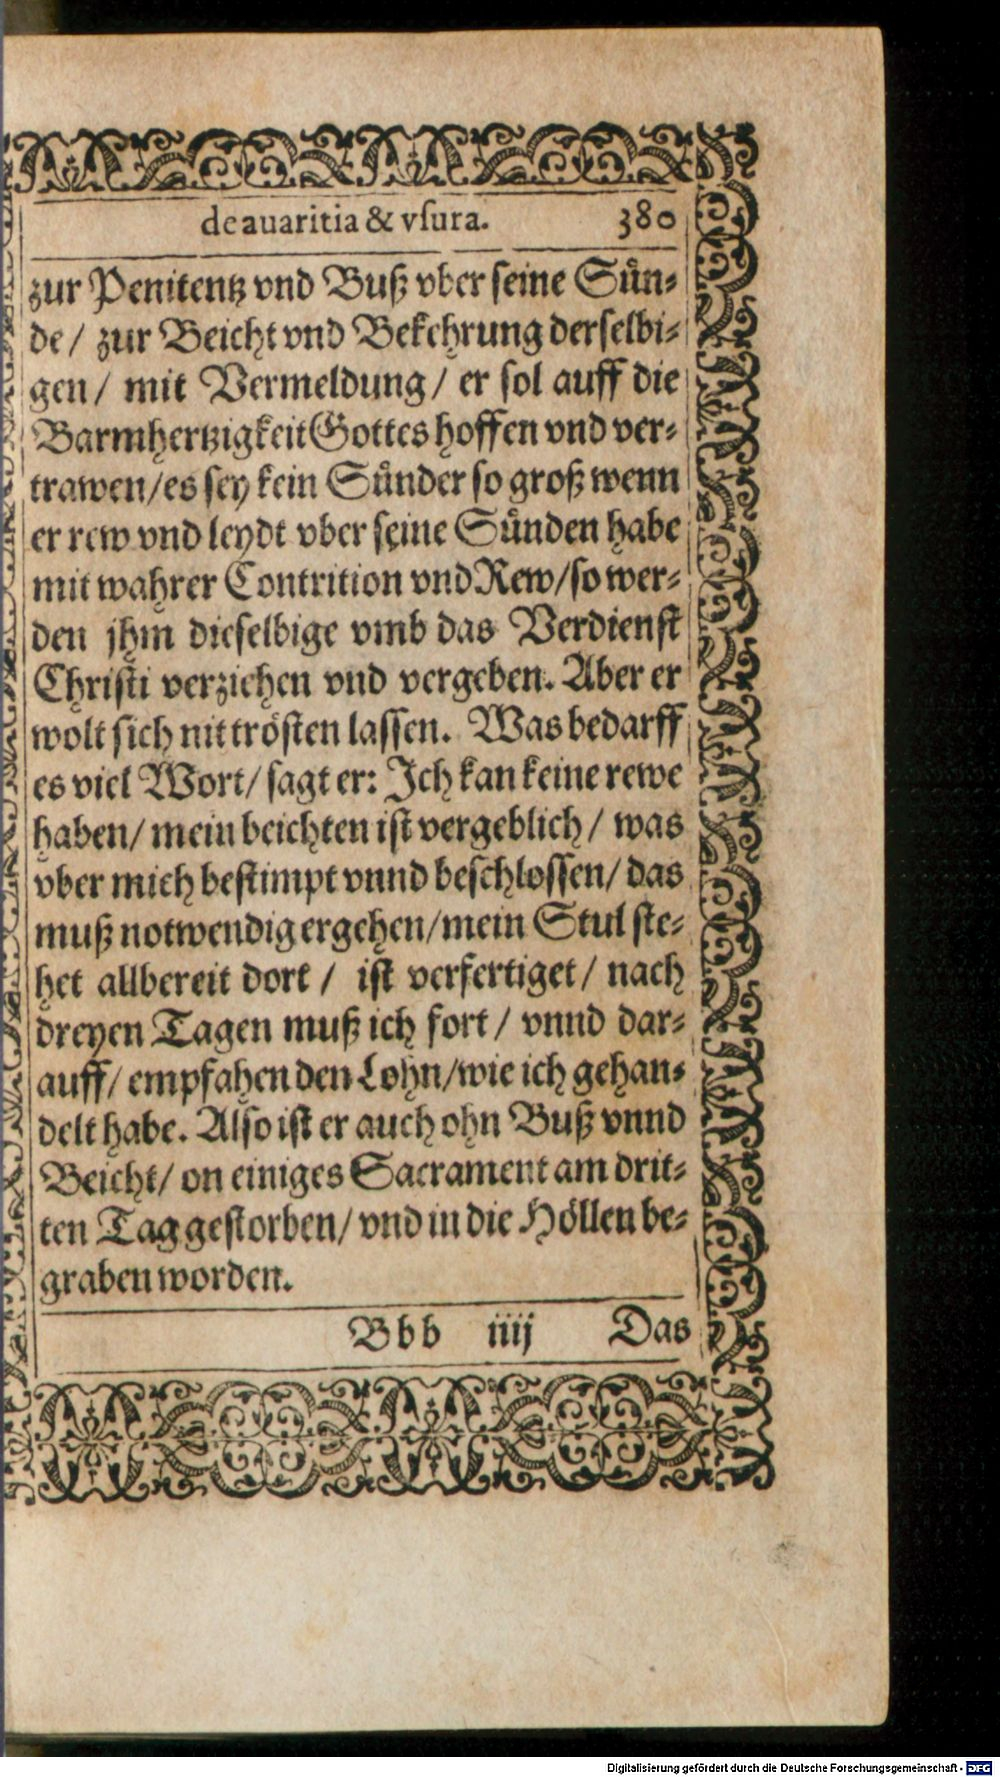 de avaritia & vſura. 380
zur Penitentz vnd Buß vber seine Sün⸗
de/ zur Beicht vnd Bekehrung derselbi⸗
gen/ mit Vermeldung/ er sol auff die
Barmhertzigkeit Gottes hoffen vnd ver⸗
trawen/ es sey kein Sünder so groß wenn
er rew vnd leydt vber seine Sünden habe
mit wahrer Contrition vnd Rew/ so wer⸗
den jhm dieselbige vmb das Verdienst
Christi verziehen vnd vergeben. Aber er
wolt sich nit trösten lassen. Was bedarff
es viel Wort/ sagt er: Ich kan keine rewe
haben/ mein beichten ist vergeblich/ was
vber mich bestimpt vnnd beschlossen/ das
muß notwendig ergehen/ mein Stul ste⸗
het allbereit dort/ ist verfertiget/ nach
dreyen Tagen muß ich fort/ vnnd dar⸗
auff/ empfahen den Lohn/ wie ich gehan⸗
delt habe. Also ist er auch ohn Buß vnnd
Beicht/ on einiges Sacrament am drit⸗
ten Tag gestorben/ vnd in die Höllen be⸗
graben worden.
Bbb iiij Das
Digitalisierung gefördert durch die Deutsche Forschungsgemeinschaft - DFG